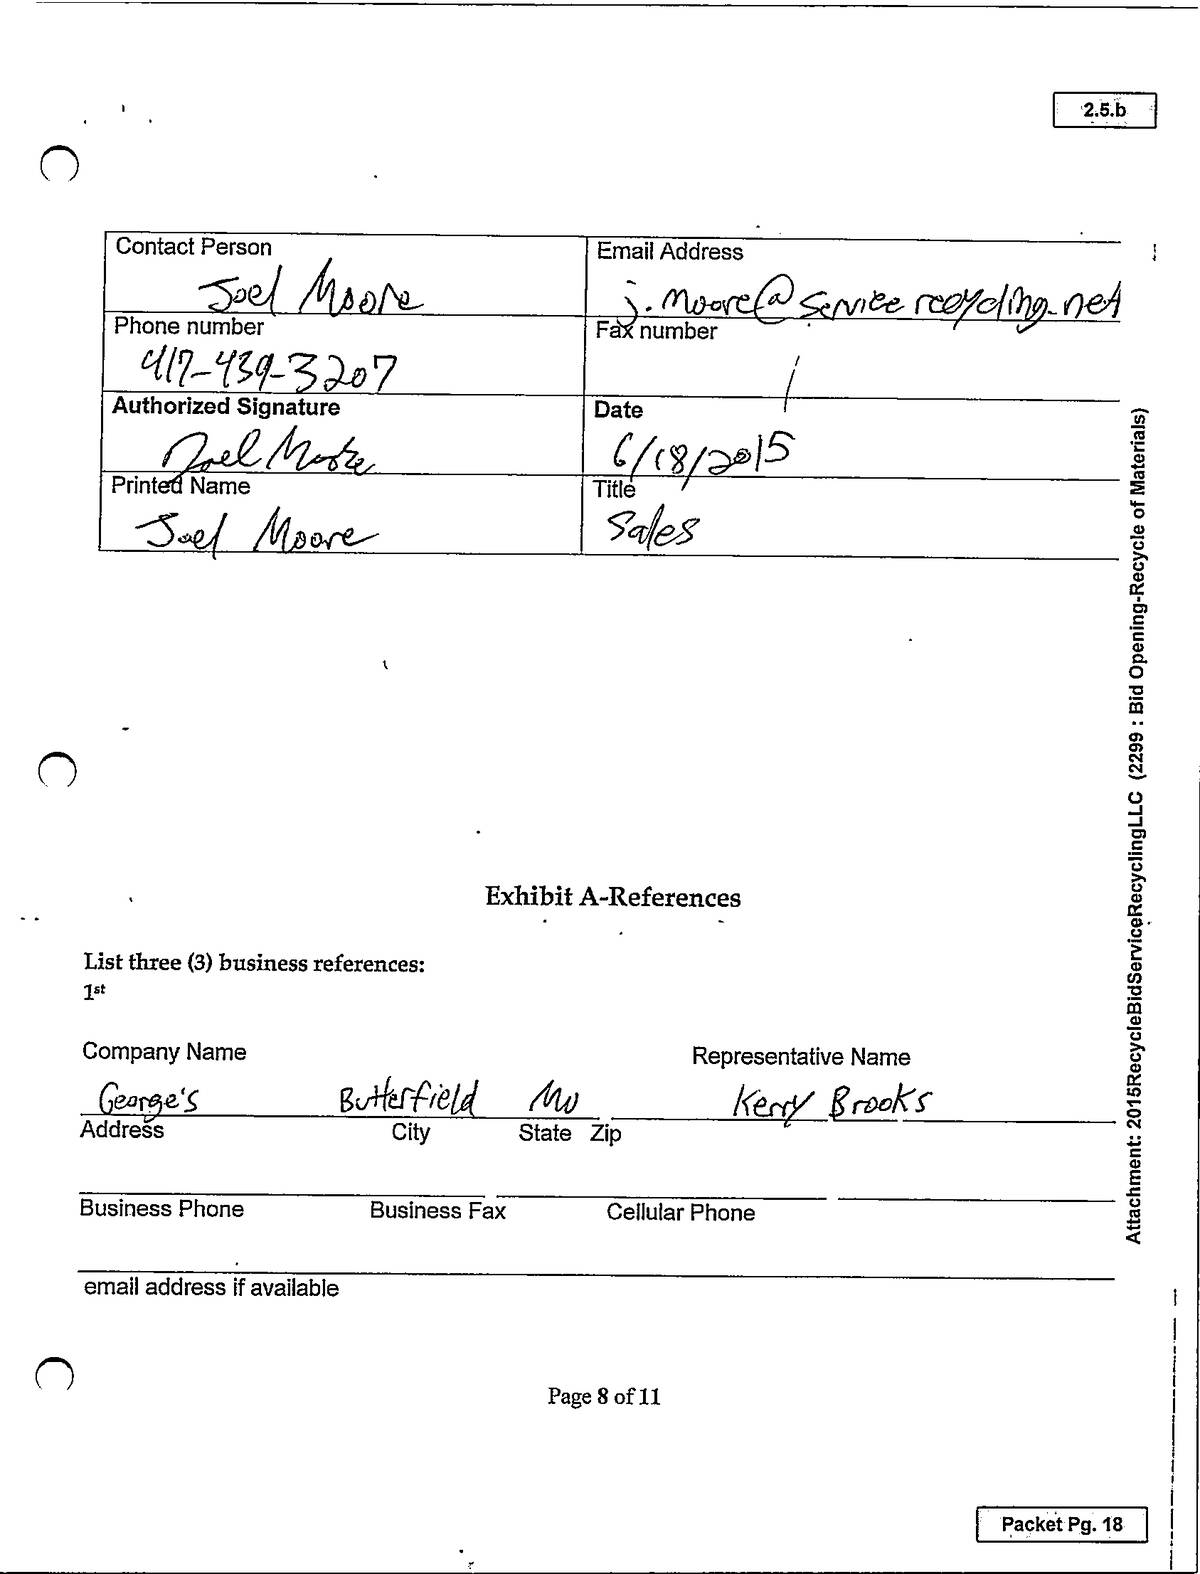 2.5.b
Contact Person
Joel Moore
Email Address
j.moore@servicerecycling.net
Phone number
417-439-3207
Fax number
/
Authorized Signature
Joel Moore
Date
6/18/2015
Printed Name
Joel Moore
Title
Sales
Exhibit A-References
List three (3) business references:
1st
Company Name Representative Name
George's Butterfield MO Kerry Brooks
Address City State Zip
Business Phone Business Fax Cellular Phone
email address if available
Page 8 of 11
Attachment: 2015RecycleBidServiceRecyclingLLC (2299 : Bid Opening-Recycle of Materials)
Packet Pg. 18